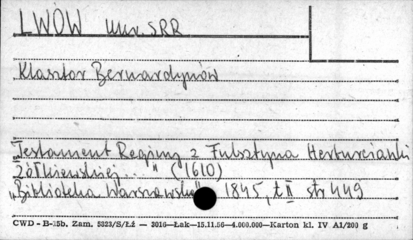 LWÓW Ukr. SRR
Klasztor Bernardynów
„Testament Reginy z Fulsztyna Herburcianki
Żółkiewskiej..." (1610)
„Biblioteka Warszawska" 1845, t. II str 449
CWD - B-35b. Zam. 5323/S/Łź — 2016—Łak—15.11.56—4.000.000—Karton kl. IV A1/200 g